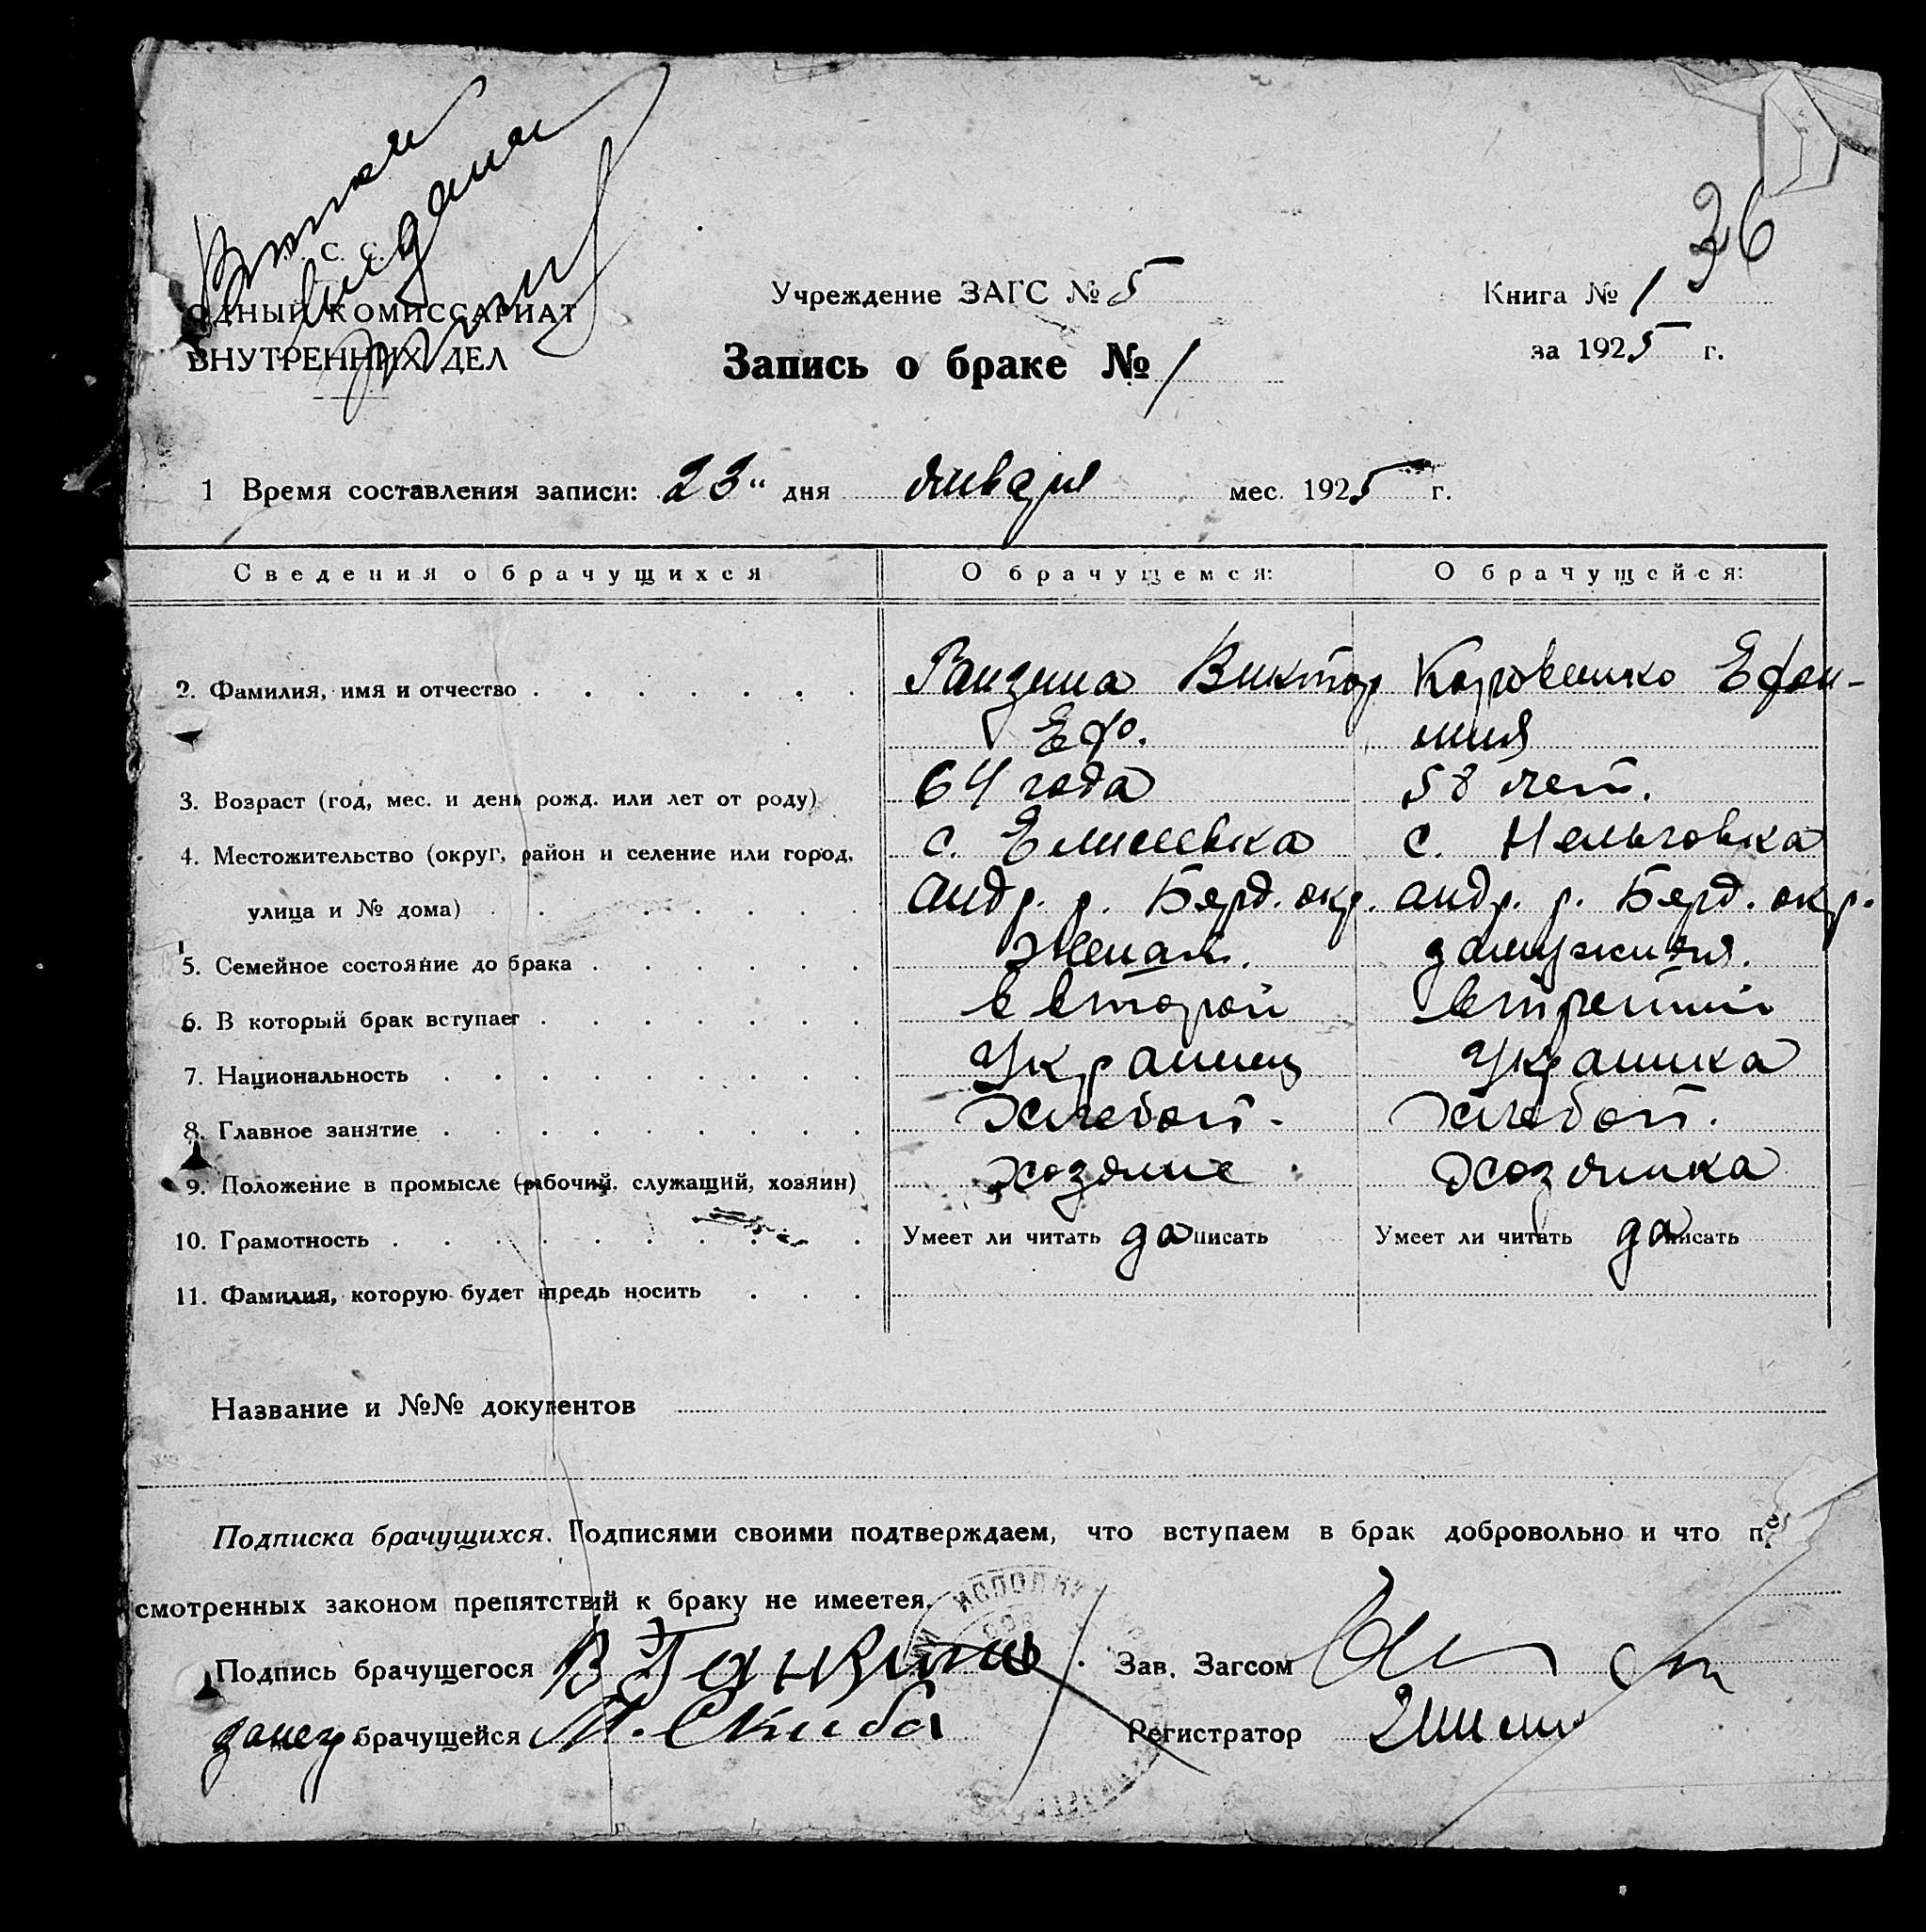 С. С.
ОДНЫЙ КОМИССАРИАТ
ВНУТРЕННИХ ДЕЛ
36
Учреждение ЗАГС № 5
Книга № 1
за 1925 г.
Запись о браке № 1
1 Время составления записи: 23" дня января мес. 1925 г.
Сведения о брачущихся О брачущемся: О брачущейся:
2. Фамилия, имя и отчество Виктор Ефи-
Еф. мия
3. Возраст (год, мес. и день рожд. или лет от роду) 64 года 58 лет.
4. Местожительство (округ, район и селение или город, с. Елисеевка с. Нельговка
улица и № дома) Андр. р. Берд. окр. Андр. р. Берд. окр.
5. Семейное состояние до брака женат. замужняя.
6. В который брак вступает в второй в третий
7. Национальность Украинец Украинка
8. Главное занятие Хлебоп. Хлебоп.
9. Положение в промысле (рабочий, служащий, хозяин) хозяине хозяинка
10. Грамотность Умеет ли читать да писать Умеет ли читать да писать
11. Фамилия, которую будет впредь носить
Название и №№ документов
Подписка брачущихся. Подписями своими подтверждаем, что вступаем в брак добровольно и что пре
смотренных законом препятствий к браку не имеется.
Подпись брачущегося В Зав. Загсом
за неграм. брачущейся Скиба Регистратор